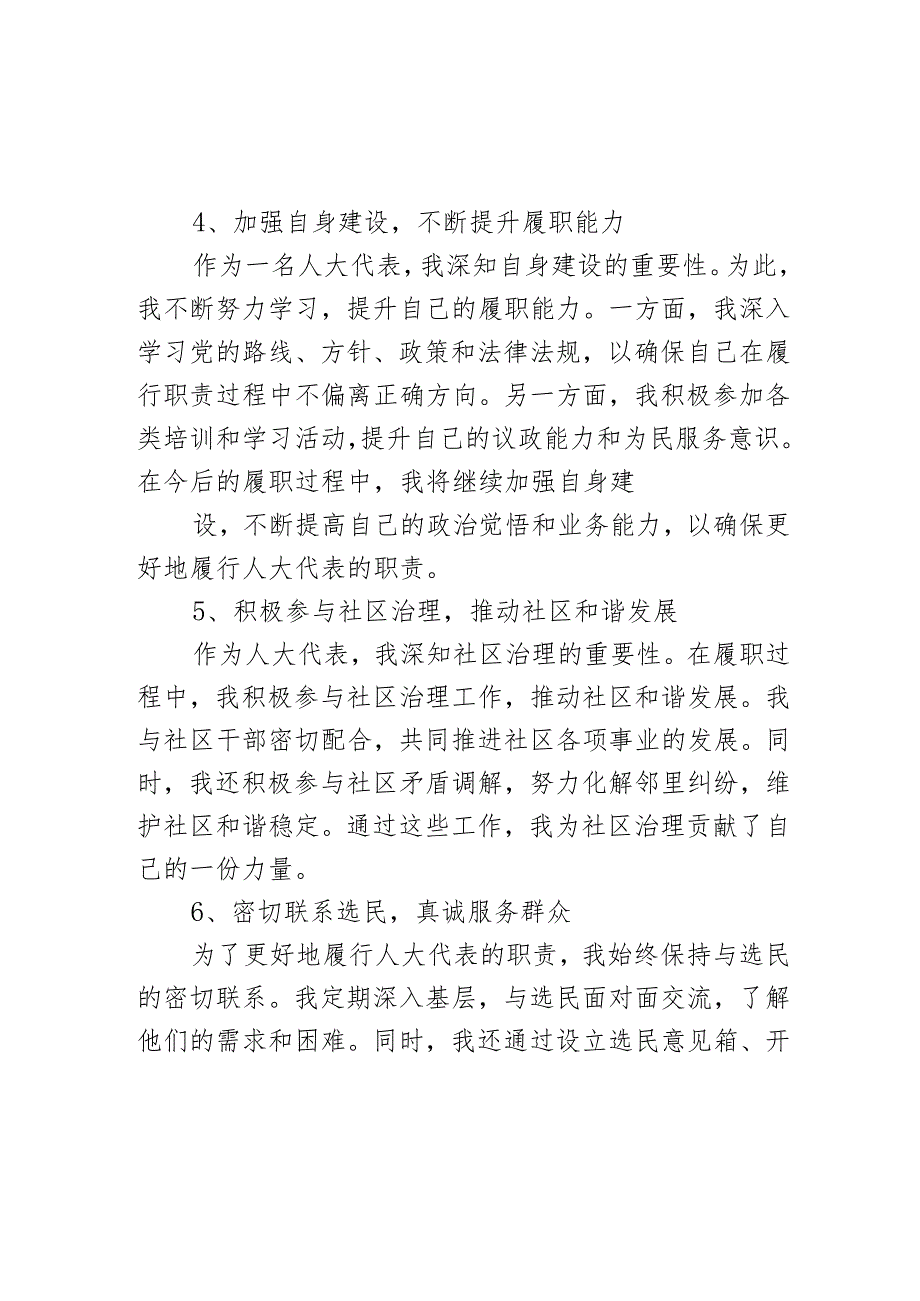 4、加强自身建设，不断提升履职能力
作为一名人大代表，我深知自身建设的重要性。为此，
我不断努力学习，提升自己的履职能力。一方面，我深入
学习党的路线、方针、政策和法律法规，以确保自己在履
行职责过程中不偏离正确方向。另一方面，我积极参加各
类培训和学习活动，提升自己的议政能力和为民服务意识。
在今后的履职过程中，我将继续加强自身建
设，不断提高自己的政治觉悟和业务能力，以确保更
好地履行人大代表的职责。
5、积极参与社区治理，推动社区和谐发展
作为人大代表，我深知社区治理的重要性。在履职过
程中，我积极参与社区治理工作，推动社区和谐发展。我
与社区干部密切配合，共同推进社区各项事业的发展。同
时，我还积极参与社区矛盾调解，努力化解邻里纠纷，维
护社区和谐稳定。通过这些工作，我为社区治理贡献了自
己的一份力量。
6、密切联系选民，真诚服务群众
为了更好地履行人大代表的职责，我始终保持与选民
的密切联系。我定期深入基层，与选民面对面交流，了解
他们的需求和困难。同时，我还通过设立选民意见箱、开